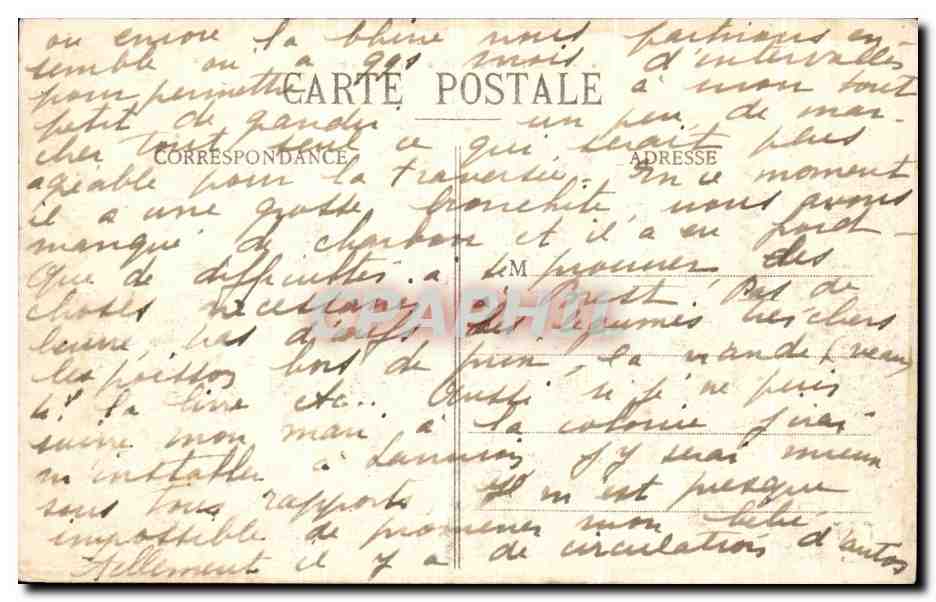 ou encore la Chine nous partirions en-
semble ou à qqs mois d'intervalles
pour permettre à mon tout
CARTE POSTALE
petit de grandir un peu, de mar-
cher tout seul ce qui serait plus
CORRESPONDANCE
ADRESSE
agréable pour la traversée. En ce moment
il a une grosse bronchite, nous avons
manqué de charbon et il a eu froid.
Que de difficultés à se procurer des
M
choses nécessaires à Brest! Pas de
beurre, pas d'oeufs des légumes très chers
les poissons hors de prix, la viande (veau)
4f la livre etc.. Aussi si je ne puis
suivre mon mari à la colonie j'irai
m'installer à Lannion j'y serai mieux
sous tous rapports. Il m'est presque
impossible de promener mon bébé
tellement il y a de circulations d'autos
CPAPHIL